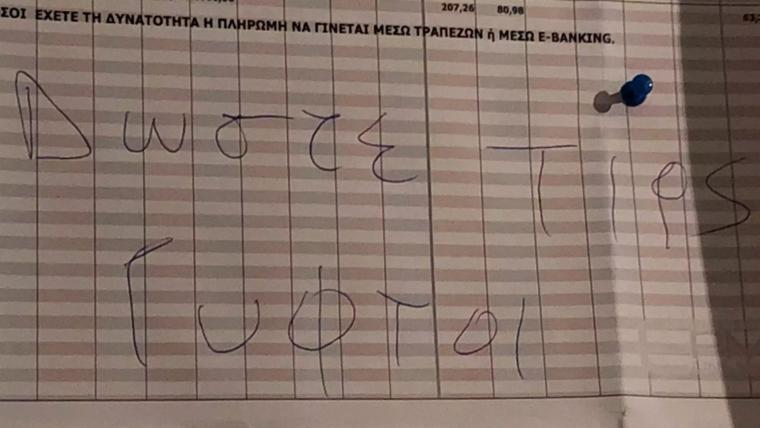 207,26 80,98
ΣΟΙ ΕΧΕΤΕ ΤΗ ΔΥΝΑΤΟΤΗΤΑ Η ΠΛΗΡΩΜΗ ΝΑ ΓΙΝΕΤΑΙ ΜΕΣΩ ΤΡΑΠΕΖΩΝ ή ΜΕΣΩ E-BANKING.
Δωστε Tips
Γυφτοι